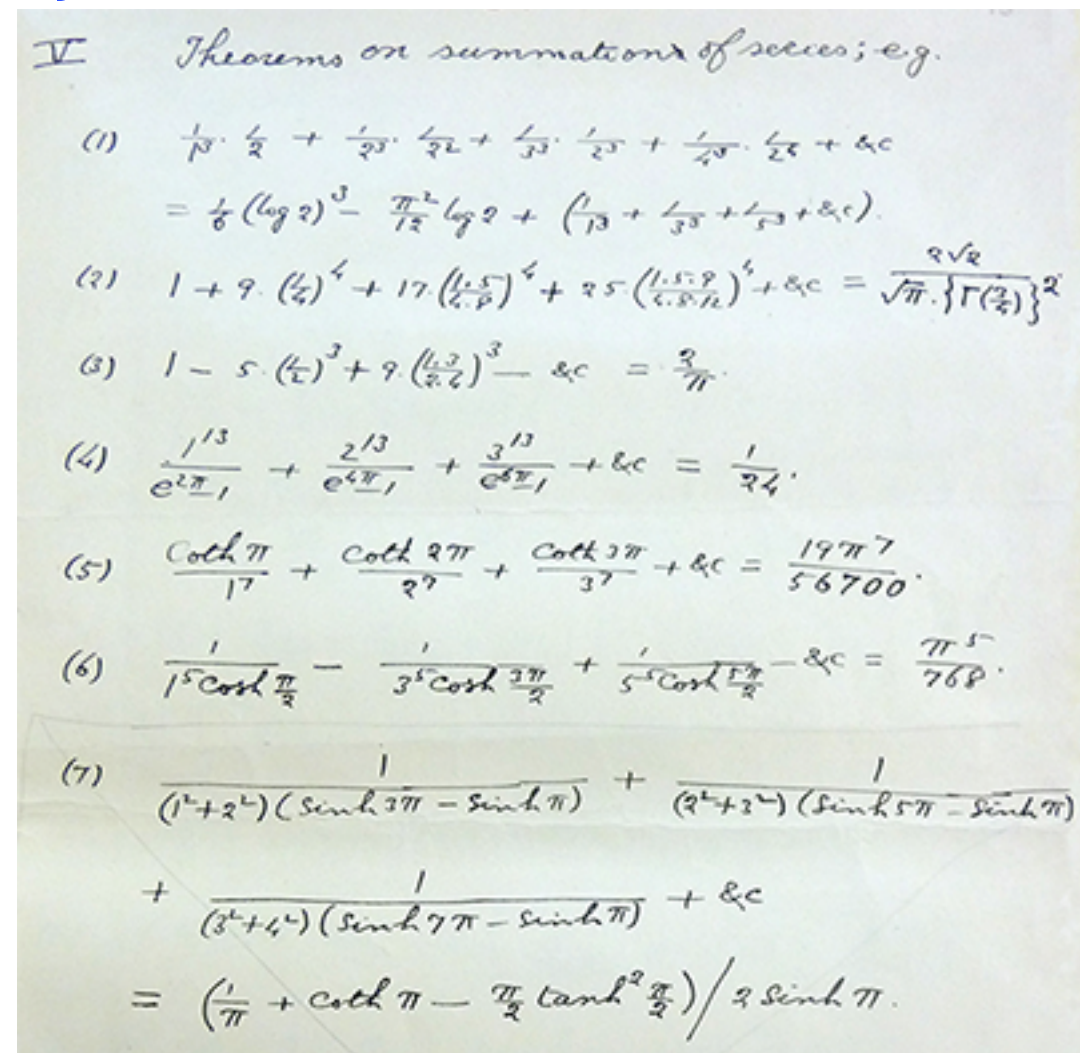 V Theorems on summations of series; e.g.
(1) 1/1³ · 1/2 + 1/2³ · 1/2² + 1/3³ · 1/2³ + 1/4³ · 1/2⁴ + &c
= 1/6 (log 2)³ − π²/12 log 2 + (1/1³ + 1/3³ + 1/5³ + &c).
(2) 1 + 9 · (1/4)⁴ + 17 · (1.5/4.8)⁴ + 25 · (1.5.9/4.8.12)⁴ + &c = 2√2 / √π · {Γ(3/4)}²
(3) 1 − 5 · (1/2)³ + 9 · (1.3/2.4)³ − &c = 2/π.
(4) 1¹³/(e^{2π} − 1) + 2¹³/(e^{4π} − 1) + 3¹³/(e^{6π} − 1) + &c = 1/24.
(5) Coth π/1⁷ + Coth 2π/2⁷ + Coth 3π/3⁷ + &c = 19π⁷/56700.
(6) 1/(1⁵ Cosh π/2) − 1/(3⁵ Cosh 3π/2) + 1/(5⁵ Cosh 5π/2) − &c = π⁵/768.
(7) 1/((1²+2²)(Sinh 3π − Sinh π)) + 1/((2²+3²)(Sinh 5π − Sinh π))
+ 1/((3²+4²)(Sinh 7π − Sinh π)) + &c
= (1/π + Coth π − π/2 tanh² π/2) / 2 Sinh π.